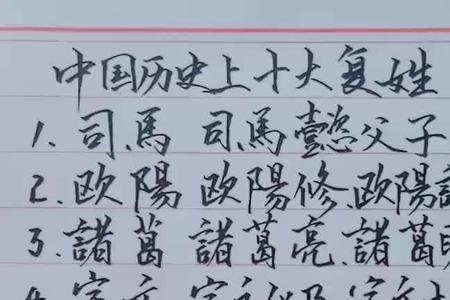 中国历史上十大复姓
1、司馬 司馬懿父子
2、欧陽 欧陽修、欧陽
3、諸葛 諸葛亮、諸葛
4